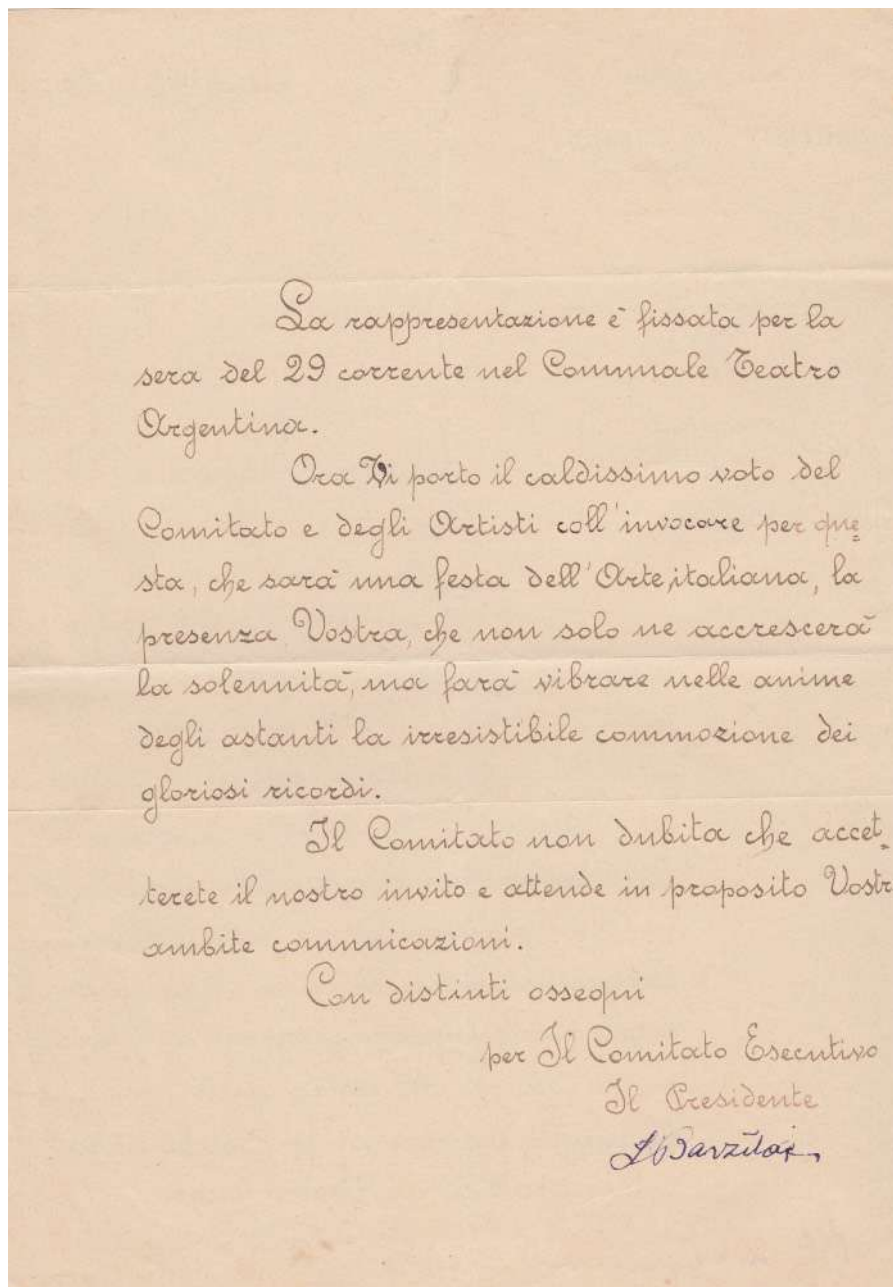 La rappresentazione è fissata per la
sera del 29 corrente nel Communale Teatro
Argentina.
Ora Vi porto il caldissimo voto del
Comitato e degli Artisti coll'invocare per que=
sta, che sarà una festa dell'Arte italiana, la
presenza Vostra, che non solo ne accrescerà
la solennità, ma farà vibrare nelle anime
degli astanti la irresistibile commozione dei
gloriosi ricordi.
Il Comitato non dubita che accet=
terete il nostro invito e attende in proposito Vostr
ambite comunicazioni.
Con distinti ossequi
per Il Comitato Esecutivo
Il Presidente
S Barzilai